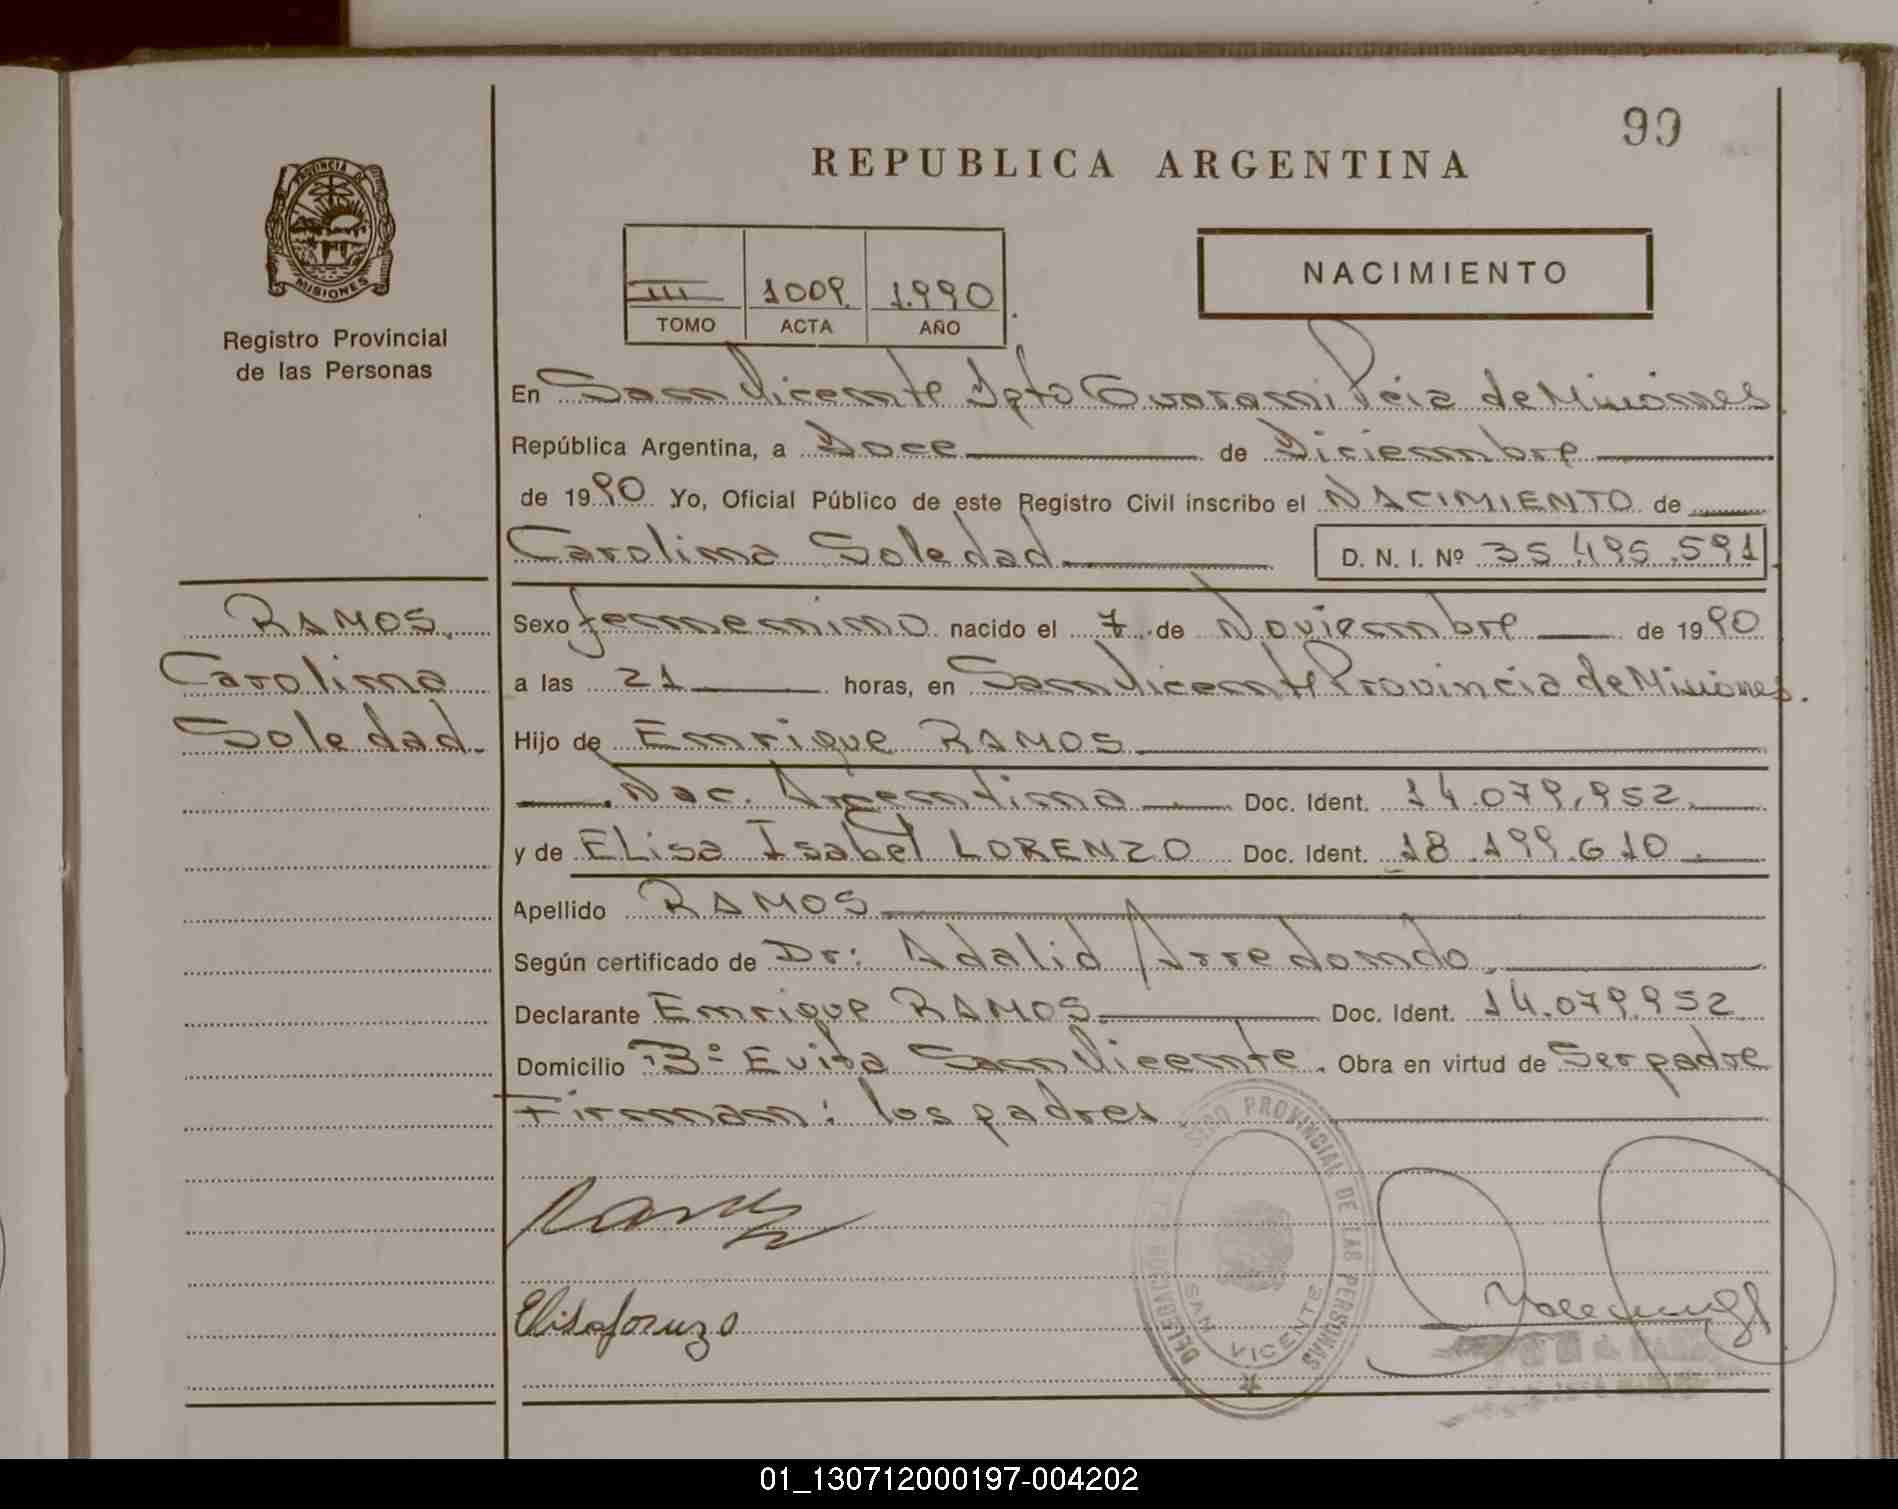 99
REPUBLICA ARGENTINA
PROVINCIA DE
MISIONES
Registro Provincial
de las Personas
III 1009. 1.990
TOMO ACTA AÑO
NACIMIENTO
En San Vicente Dpto Guarani Pcia de Misiones
República Argentina, a Doce de Diciembre
de 1990 Yo, Oficial Público de este Registro Civil inscribo el NACIMIENTO de
Carolina Soledad D. N. I. Nº 35.495.591
RAMOS.
Carolina
Soledad.
Sexo femenino nacido el 7 de Noviembre de 1990
a las 21 horas, en San Vicente Provincia de Misiones.
Hijo de Enrique RAMOS
Nac. Argentina Doc. Ident. 14.079.952.
y de ELisa Isabel LORENZO Doc. Ident. 18.199.610.
Apellido RAMOS
Según certificado de Dr: Adalid Arredondo.
Declarante Enrique RAMOS. Doc. Ident. 14.079.952
Domicilio Bº Evita San Vicente. Obra en virtud de Ser padre
Firman: los padres
PROVINCIAL DE LAS PERSONAS
SAN VICENTE
Elisa Lorenzo
01_130712000197-004202